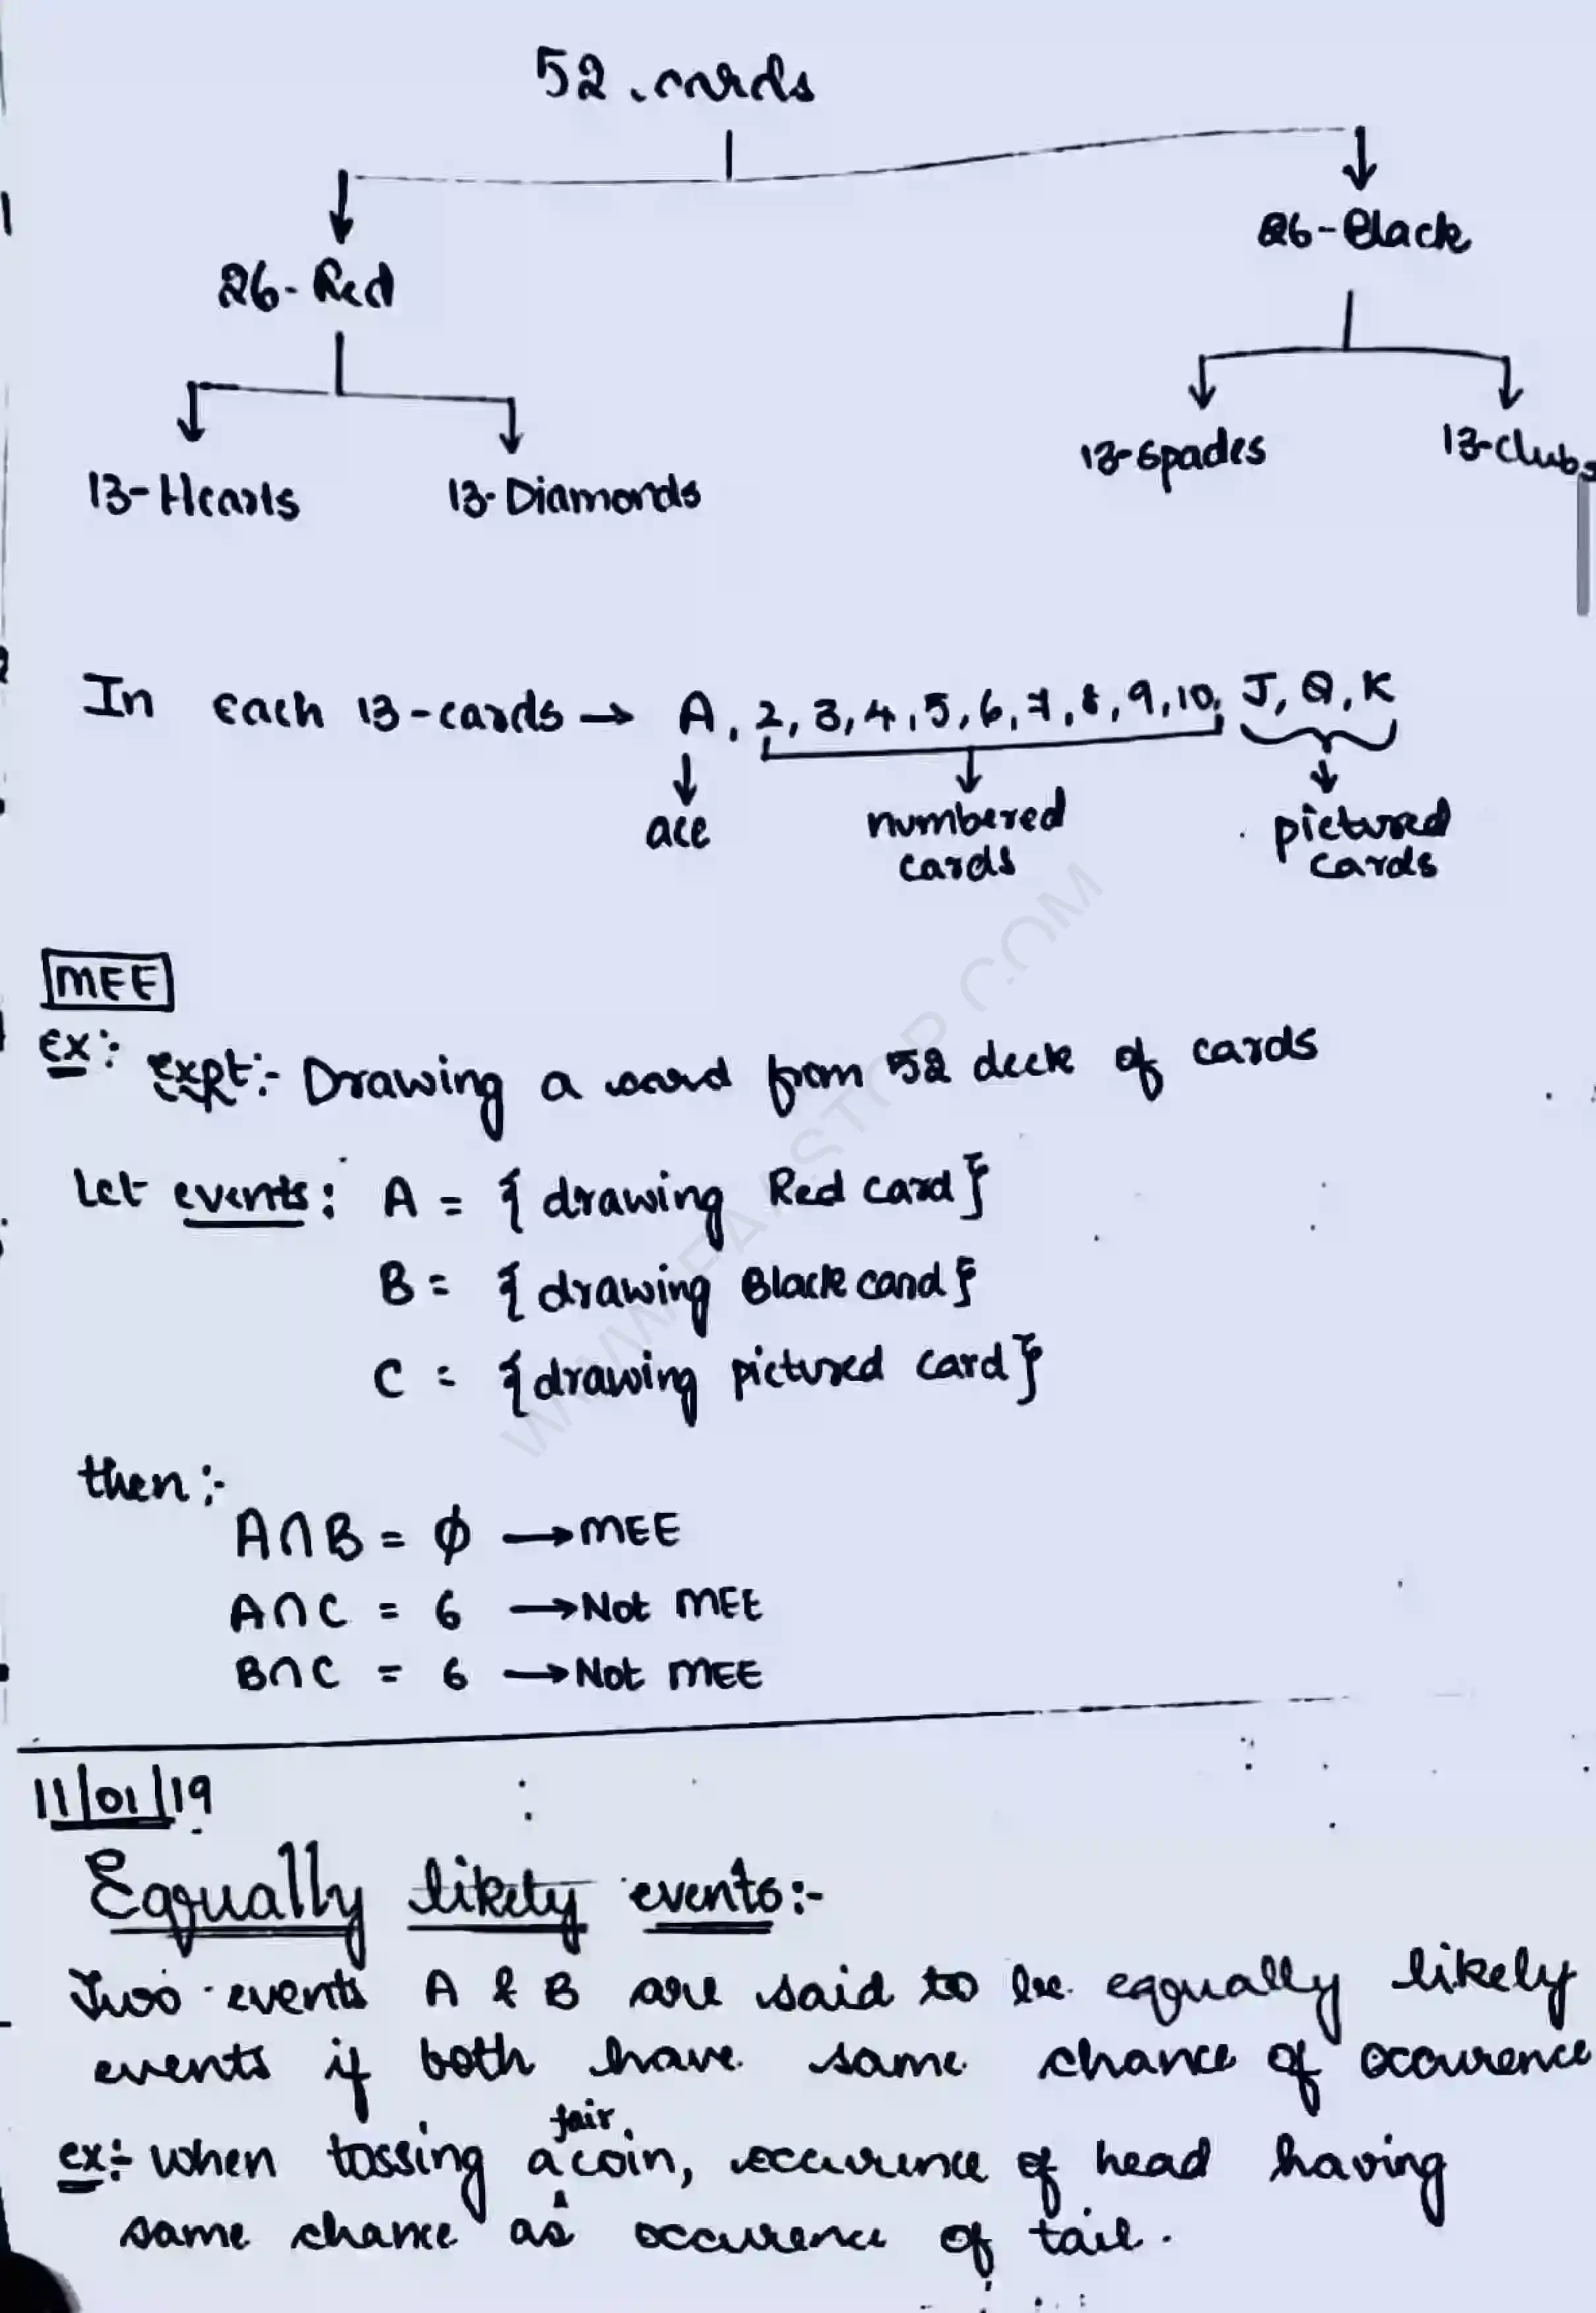 52 cards
26-Red
26-Black
13-Hearts
13-Diamonds
13-Spades
13-clubs
In each 13-cards → A, 2, 3, 4, 5, 6, 7, 8, 9, 10, J, Q, K
ace
numbered
cards
pictured
cards
MEE
ex:
expt:- Drawing a card from 52 deck of cards
Let events: A = { drawing Red card }
B = { drawing Black card }
C = { drawing pictured card }
then:-
A∩B = ϕ → MEE
A∩C = 6 → Not MEE
B∩C = 6 → Not MEE
11/01/19
Equally likely events:-
Two events A & B are said to be equally likely
events if both have same chance of occurence
ex:- when tossing a fair coin, occurence of head having
same chance as occurence of tail.